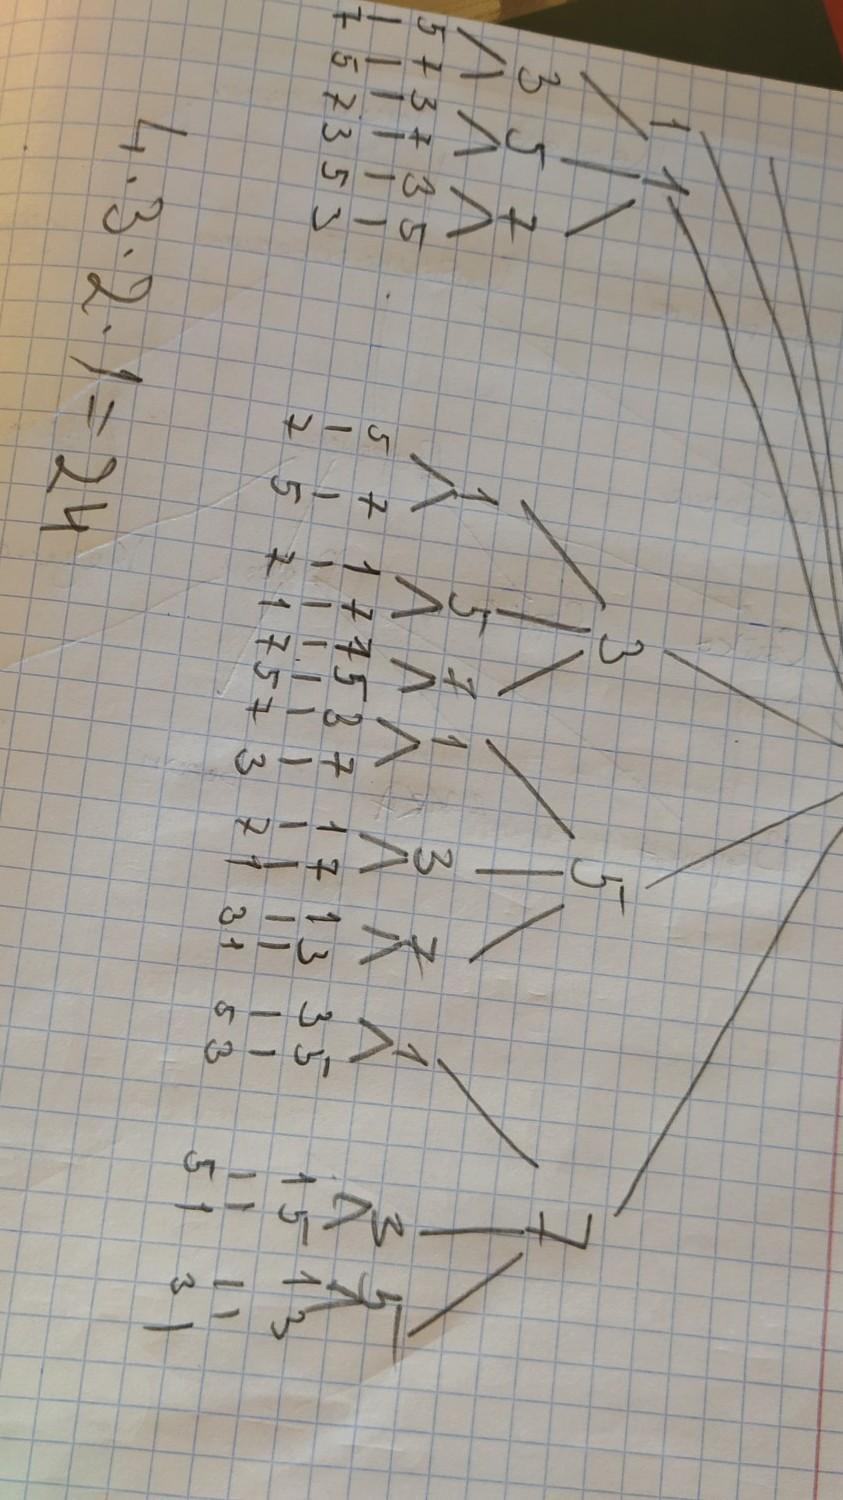 1 1 3 5 7
3 5 7 1 5 7 1 3 7 1 3 5
5 7 3 7 3 5 5 7 1 7 7 5 3 7 1 7 1 3 3 5 1 5 1 3
7 5 7 3 5 3 7 5 7 1 7 5 7 3 7 1 3 1 5 3 5 1 3 1
4·3·2·1=24